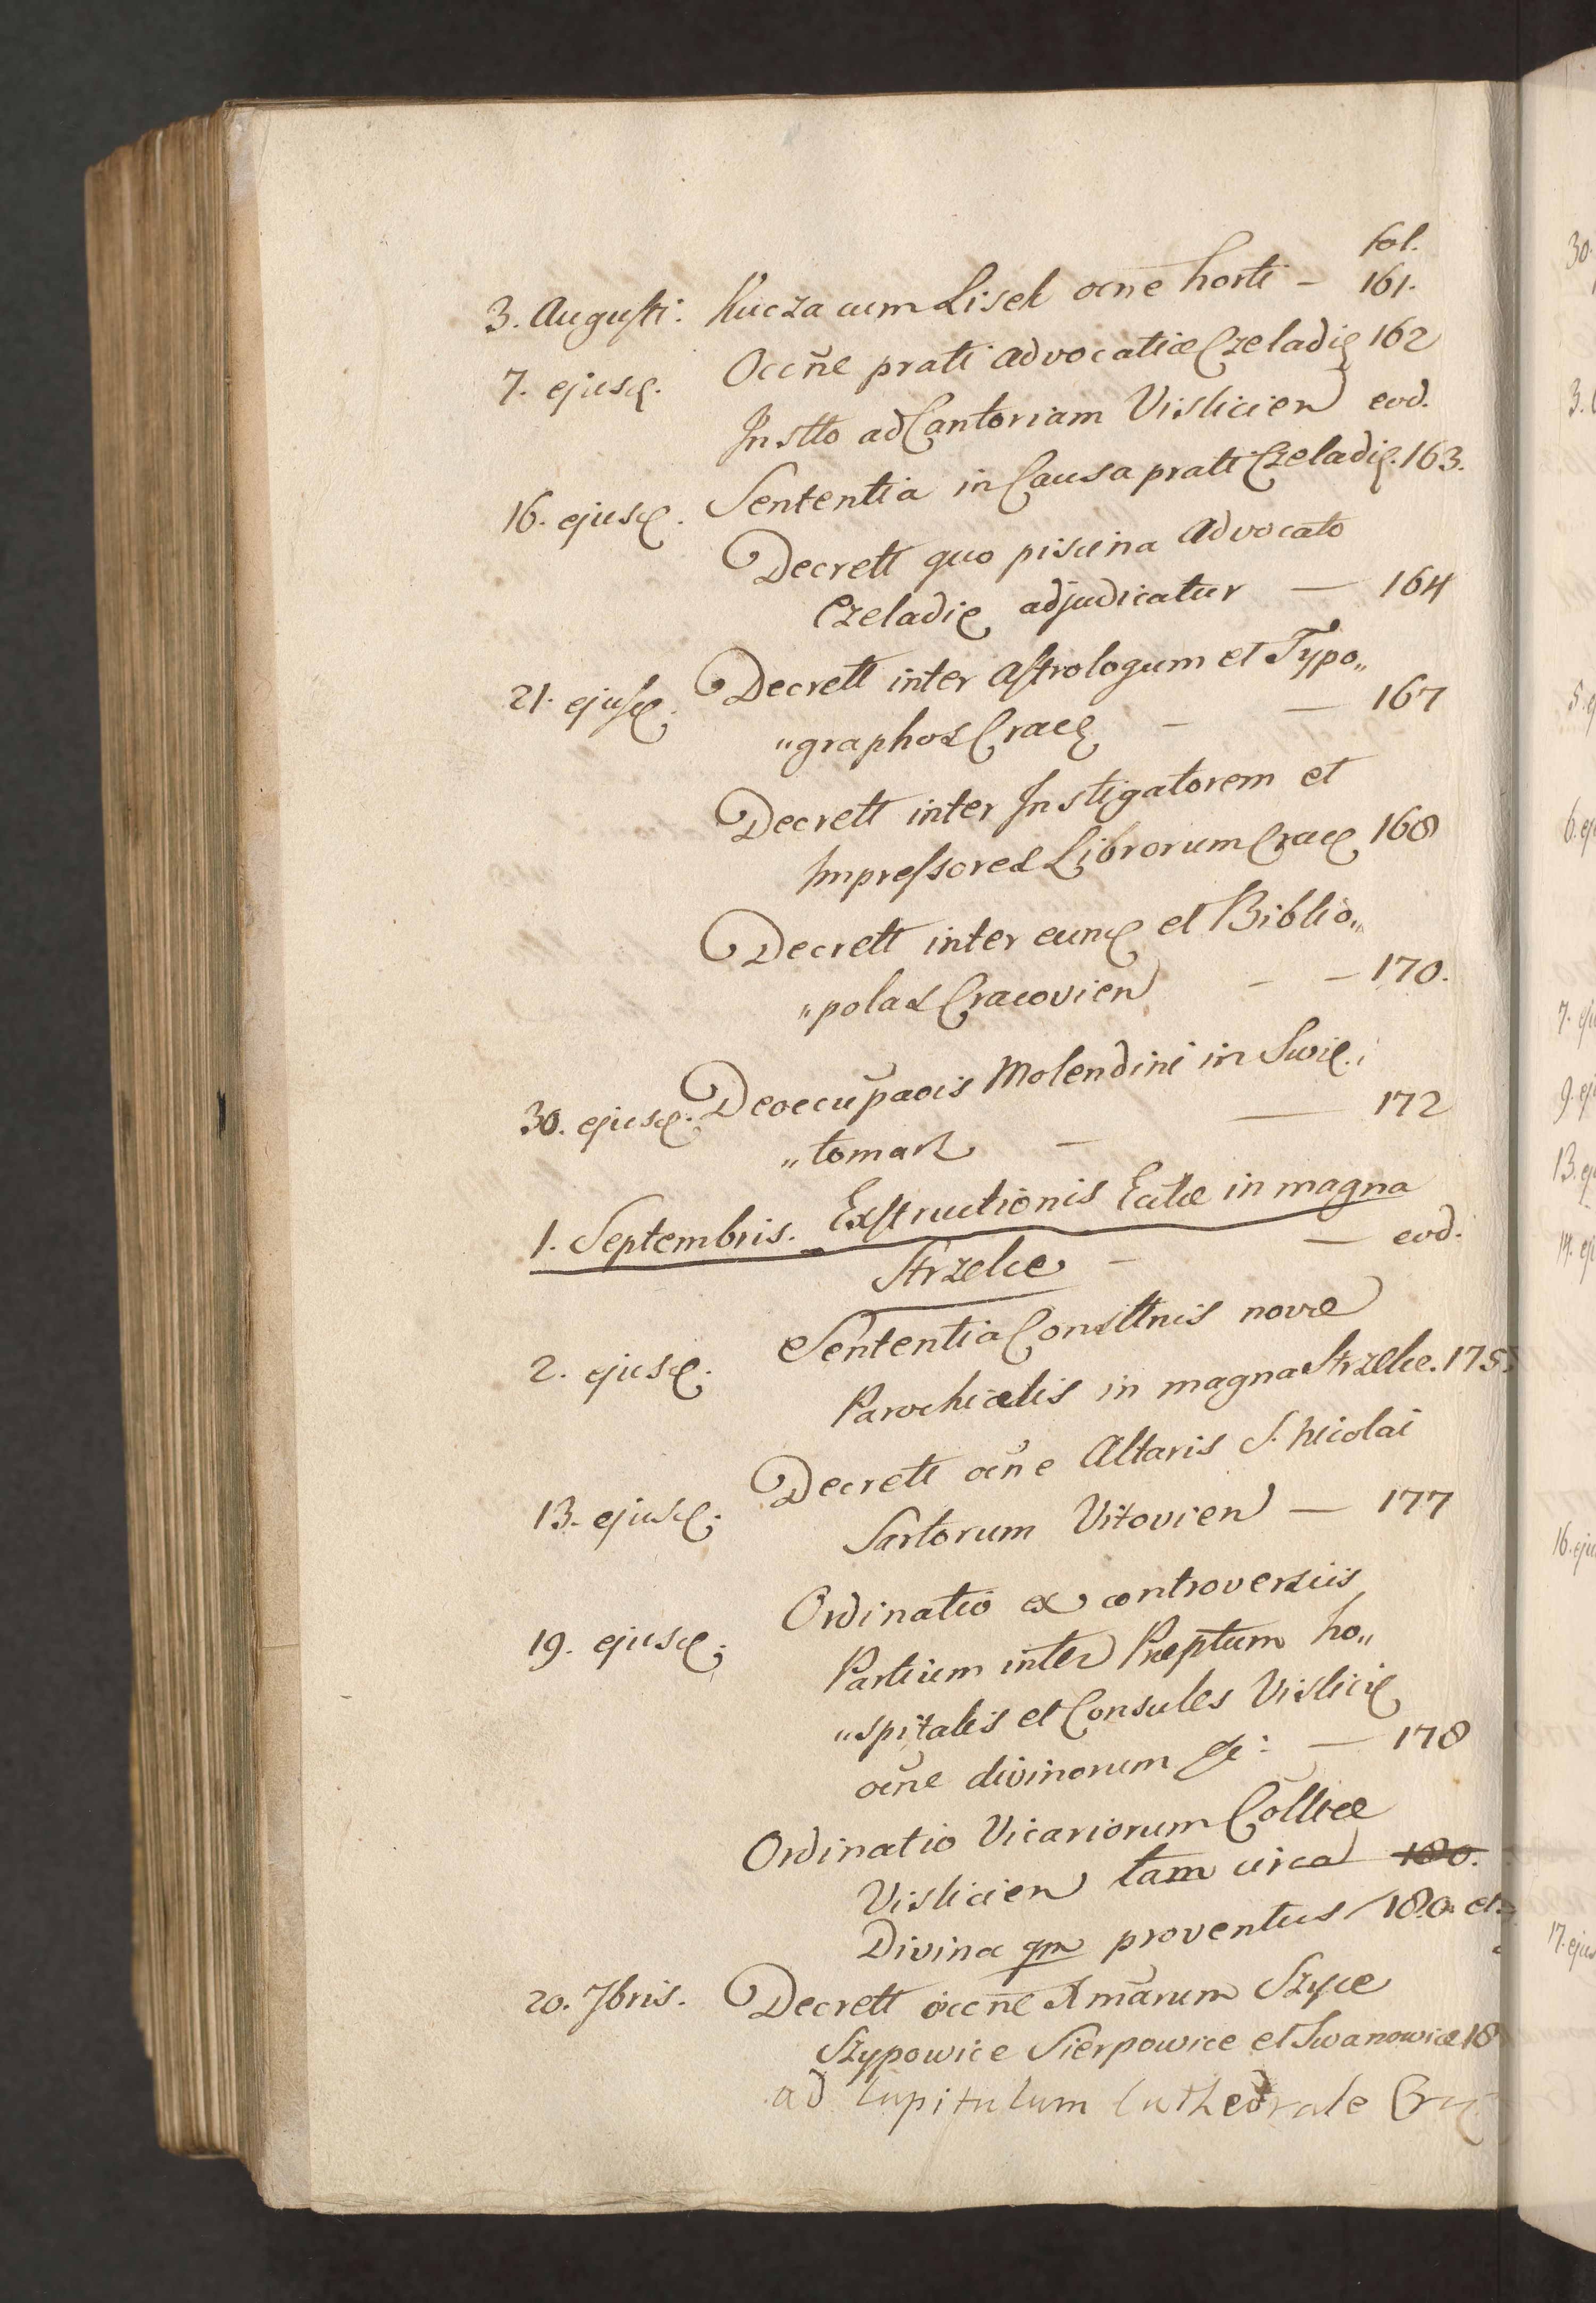 fol.
3. Augusti: Kucza cum Lisek ocne horti - 161.
7. ejusd. Occne prati advocatiæ Czeladz 162
Instto ad Cantoriam Vislicien eod.
16. ejusd. Sententia in Causa prati Czeladz. 163.
Decrett quo piscina Advocato
Czeladz adjudicatur — 164
21. ejusd. Decrett inter Astrologum et Typo„
„graphos Crac - — 167
Decrett inter Instigatorem et
Impressores Librorum Crac 168
Decrett inter eund et Biblio„
„polas Cracovien - — 170.
30. ejusd. Deoccupaois Molendini in Swię„
„toman — — 172
1. Septembris. Exstructionis Eccлæ in magna
Strzelce - — eod.
2. ejusd. Sententia Consttnis novæ
Parochialis in magna Strzelce. 175
13. ejusd. Decrett ocne Altaris S. Nicolai
Sartorum Vitovien — 177
19. ejusd. Ordinatio ex controversiis
Partium inter Præptum ho„
„spitalis et Consules Vislicien
ocne divinorum &c: — 178
Ordinatio Vicariorum Colltæ
Vislicien tam circa 180.
Divina qm proventus 180. et
20. 7bris. Decrett occne Xmarum Szyce
Szypowice Sierpowice et Iwanowice 18
ad Capitulum Cathedrale Crac